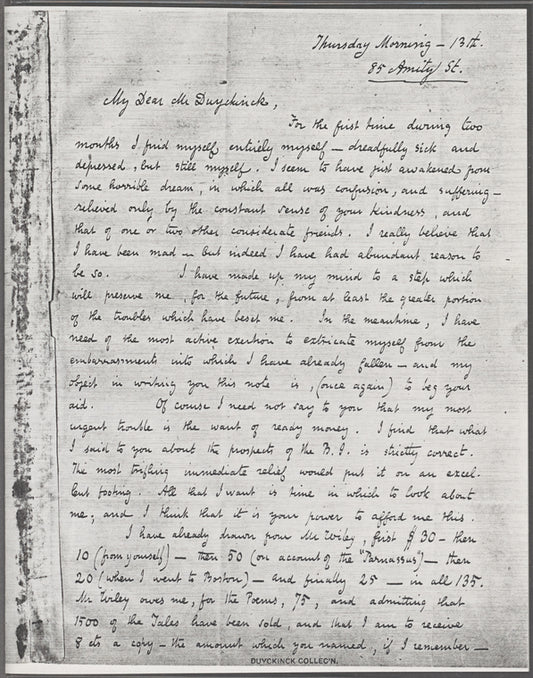 Thursday Morning – 13th.
85 Amity St.
My Dear Mr Duyckinck,
For the first time during two
months I find myself entirely myself – dreadfully sick and
depressed, but still myself. I seem to have just awakened from
some horrible dream, in which all was confusion, and suffering –
relieved only by the constant sense of your kindness, and
that of one or two other considerate friends. I really believe that
I have been mad – but indeed I have had abundant reason to
be so. I have made up my mind to a step which
will preserve me, for the future, from at least the greater portion
of the troubles which have beset me. In the meantime, I have
need of the most active exertion to extricate myself from the
embarrassments into which I have already fallen – and my
object in writing you this note is, (once again) to beg your
aid. Of course I need not say to you that my most
urgent trouble is the want of ready money. I find that what
I said to you about the prospects of the B. J. is strictly correct.
The most trifling immediate relief would put it on an excel-
lent footing. All that I want is time in which to look about
me; and I think that it is your power to afford me this.
I have already drawn from Mr Wiley, first $30 – then
10 (from yourself) – then 50 (on account of the "Parnassus") – then
20 (when I went to Boston) – and finally 25 – in all 135.
Mr Wiley owes me, for the Poems, 75, and admitting that
1500 of the Tales have been sold, and that I am to receive
8 cts a copy – the amount which you named, if I remember –
DUYCKINCK COLLEC'N.